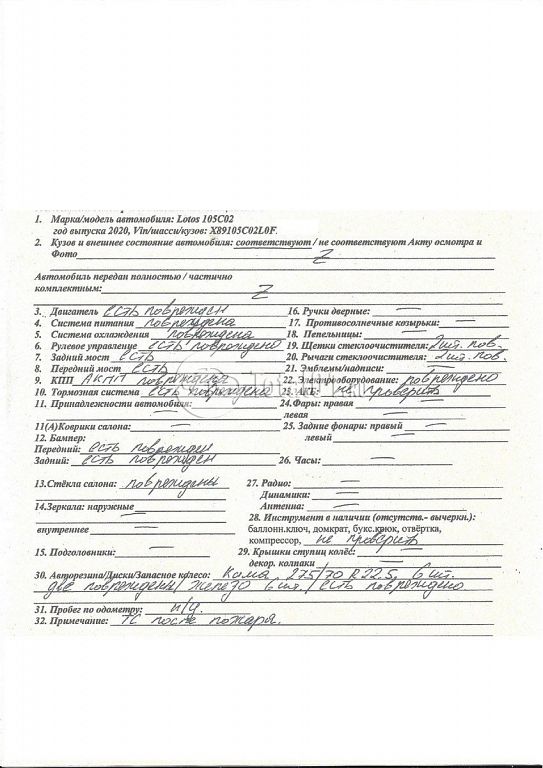 1. Марка/модель автомобиля: Lotos 105C02
год выпуска 2020, Vin/шасси/кузов: X89105C02L0F
2. Кузов и внешнее состояние автомобиля: соответствуют / не соответствуют Акту осмотра и
Фото Z
Автомобиль передан полностью / частично
комплектным: Z
3. Двигатель есть поврежден
4. Система питания повреждена
5. Система охлаждения повреждена
6. Рулевое управление есть повреждено
7. Задний мост есть
8. Передний мост есть
9. КПП АКПП повреждена
10. Тормозная система есть повреждена
11. Принадлежности автомобиля: —
11(А)Коврики салона: —
12. Бампер:
Передний: есть поврежден
Задний: есть поврежден
13.Стёкла салона: повреждены
14.Зеркала: наружные —
—
внутреннее —
15. Подголовники: —
16. Ручки дверные: —
17. Противосолнечные козырьки: —
18. Пепельницы: —
19. Щетки стеклоочистителя: 2шт. пов.
20. Рычаги стеклоочистителя: 2шт. пов.
21. Эмблемы/надписи: —
22. Электрооборудование: повреждено
23. АКБ: не проверить
24.Фары: правая —
левая —
25. Задние фонари: правый —
левый —
26. Часы: —
27. Радио: —
Динамики: —
Антенна: —
28. Инструмент в наличии (отсутств.- вычеркн.):
баллонн.ключ, домкрат, букс.крюк, отвёртка,
компрессор, не проверить
29. Крышки ступиц колёс: —
декор. колпаки —
30. Авторезина/Диски/Запасное колесо: Кама 275/70 R22.5, 6 шт.
две повреждены / железо 6 шт. / есть повреждено
31. Пробег по одометру: н/у.
32. Примечание: ТС после пожара.